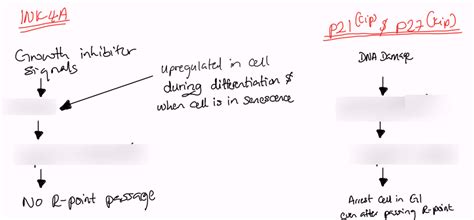 INK4A
Growth inhibitor
signals
upregulated in cell
during differentiation &
when cell is in senescence
NO R-point passage
P21(Cip) & P27(Kip)
DNA Damage
Arrest cell in G1
even after passing R-point